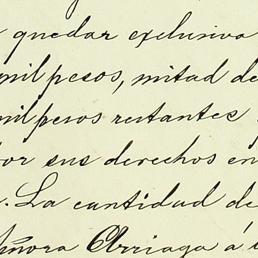 quedar exclusiva
mil pesos, mitad de
mil pesos restantes
por sus derechos en
. La cantidad de
Señora Arriaga á